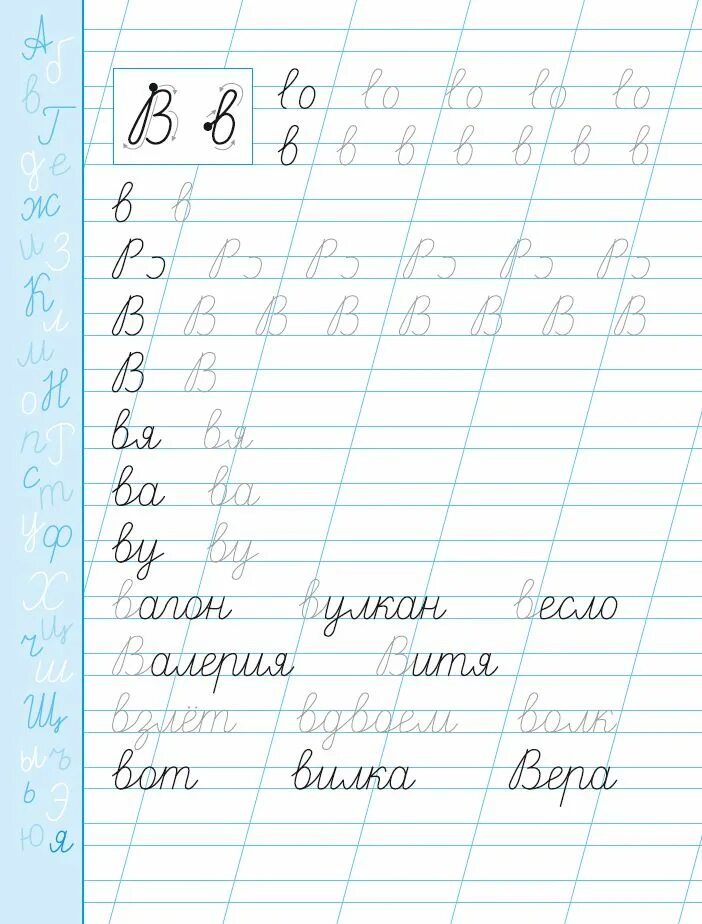 А
б
в
Г
д е
ж
и З
К
л
м
о Н
п Р
с
т
у ф
Х
ч Ц
ш
Щ
ы ъ
ь Э
Ю я
В в
в
в в
В В В В В В В В
В В
вя вя
ва ва
ву ву
вагон вулкан весло
Валерия Витя
взлёт вдвоем волк
вот вилка Вера